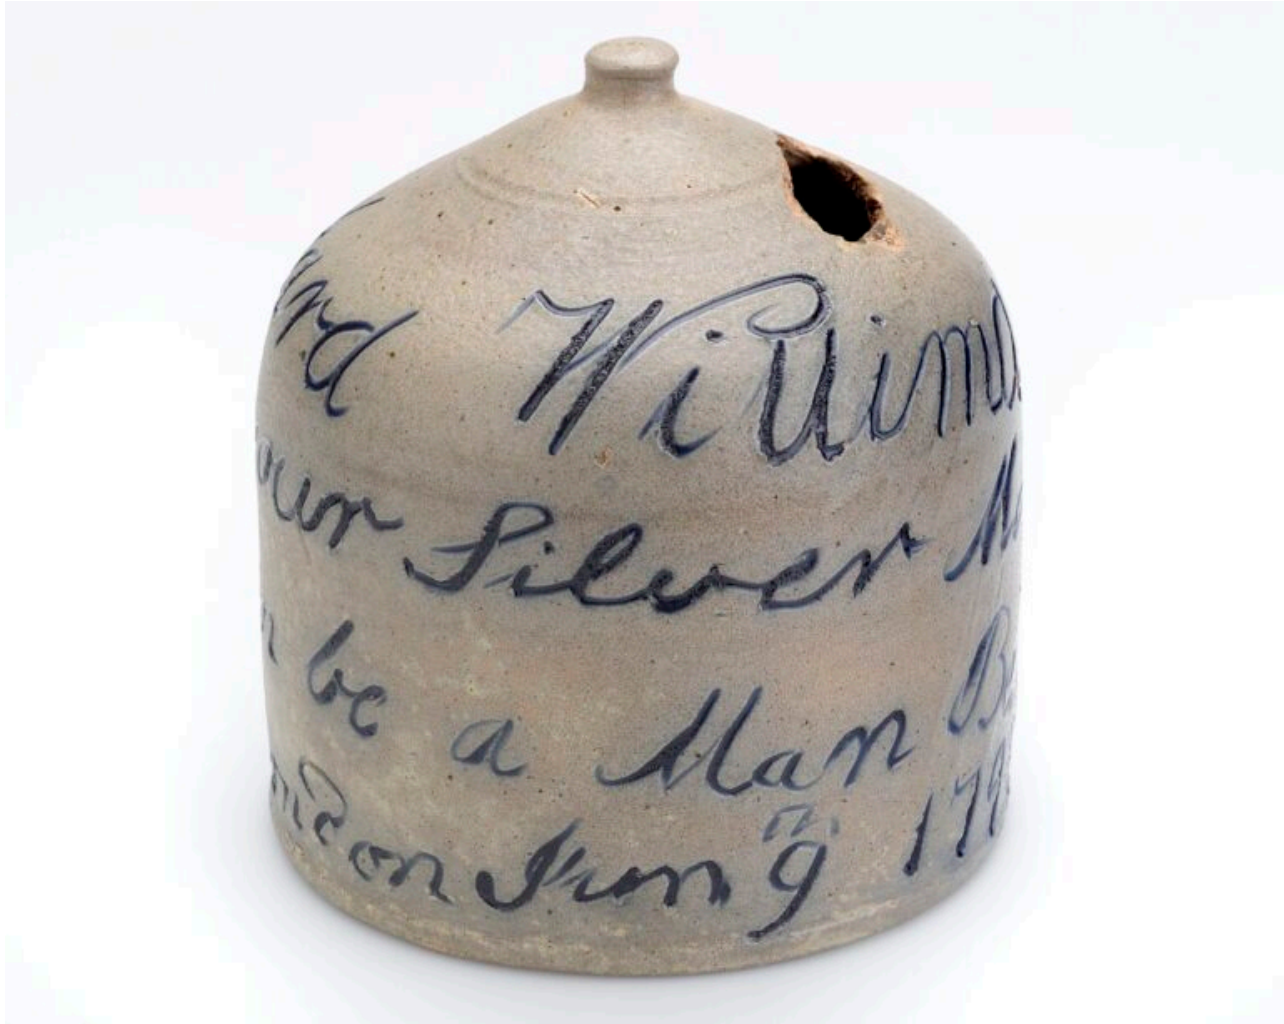 ard Willims
our Silver
be a Man
ondon Jun 9 179